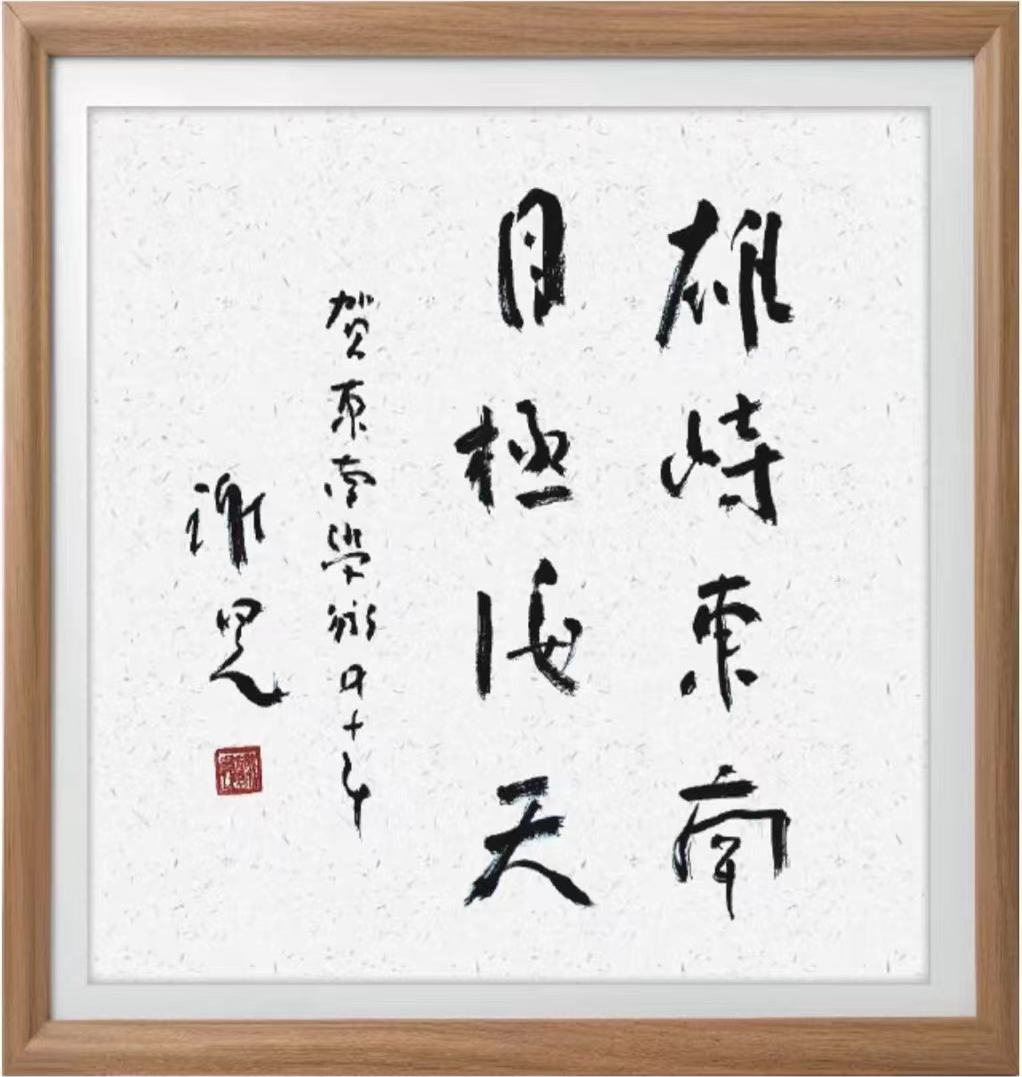 雄峙東南
目極海天
贺東南學術四十年
谢冕